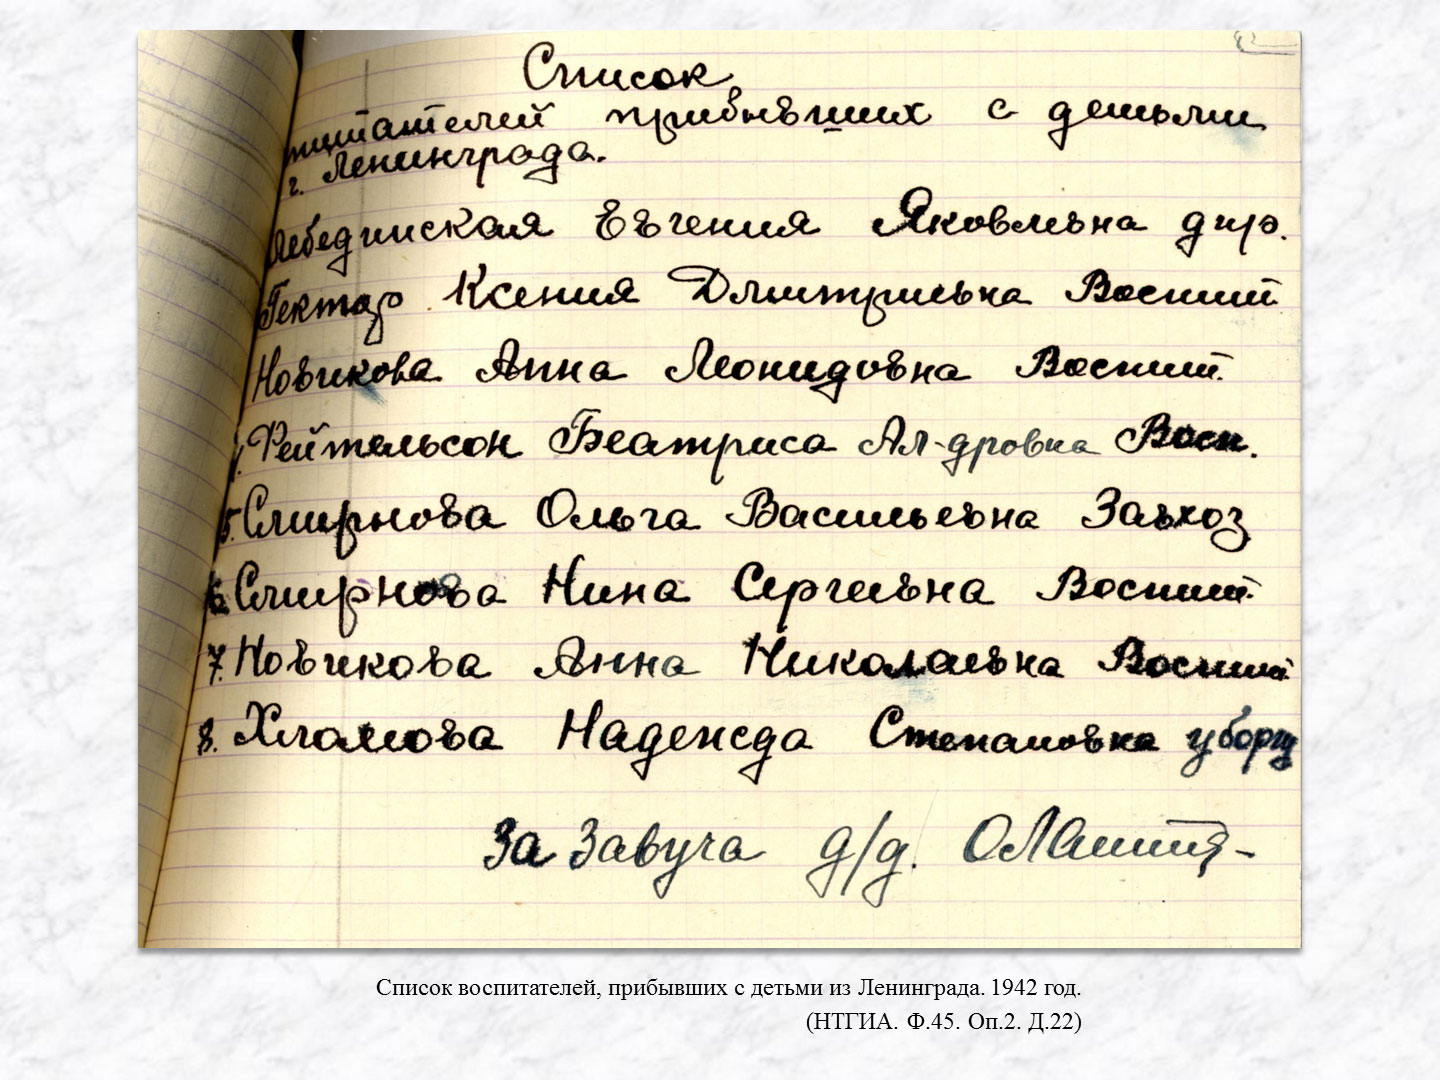 Список
питателей прибывших с детьми
г. Ленинграда.
Лебединская Евгения Яковлевна дир.
Гектор Ксения Дмитриевна Воспит
Новикова Анна Леонидовна Воспит.
Рейтельсон Беатриса Ал-дровна Восп.
5. Смирнова Ольга Васильевна Завхоз
6. Смирнова Нина Сергеевна Воспит.
7. Новикова Анна Николаевна Воспит.
8. Хламова Надежда Степановна уборщ
За Завуча д/д.
Список воспитателей, прибывших с детьми из Ленинграда. 1942 год.
(НТГИА. Ф.45. Оп.2. Д.22)